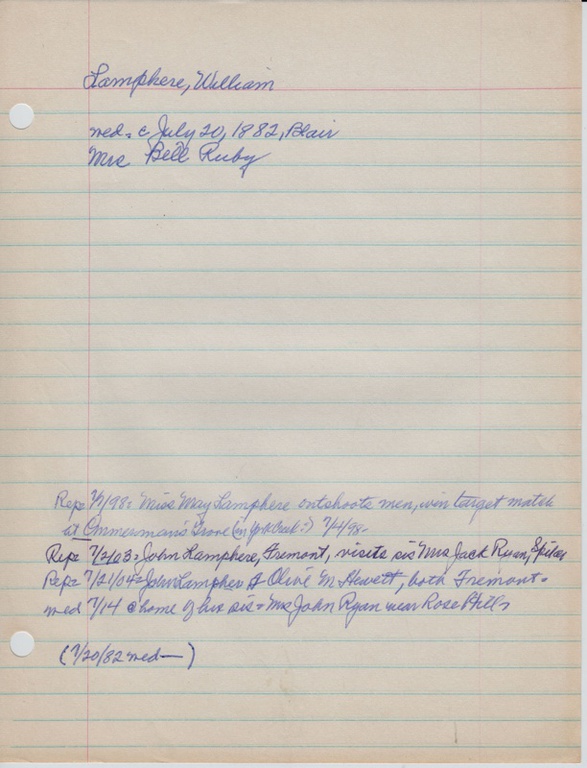 Lamphere, William
med. c July 20, 1882, Blair
Mrs Bell Ruby
Rep: 7/7/98: Miss May Lamphere outshoots men, win target match
at Ommerman's Grove (on Creek?) 7/4/98-
Rep: 7/2/03: John Lamphere, Fremont, visits sis Mrs Jack Ryan,
Rep: 7/21/04: John Lamphere & Olive M Hewett, both Fremont-
med 7/14 @ home of his sis = Mrs John Ryan near Rose Hill
(7/20/82 med—)